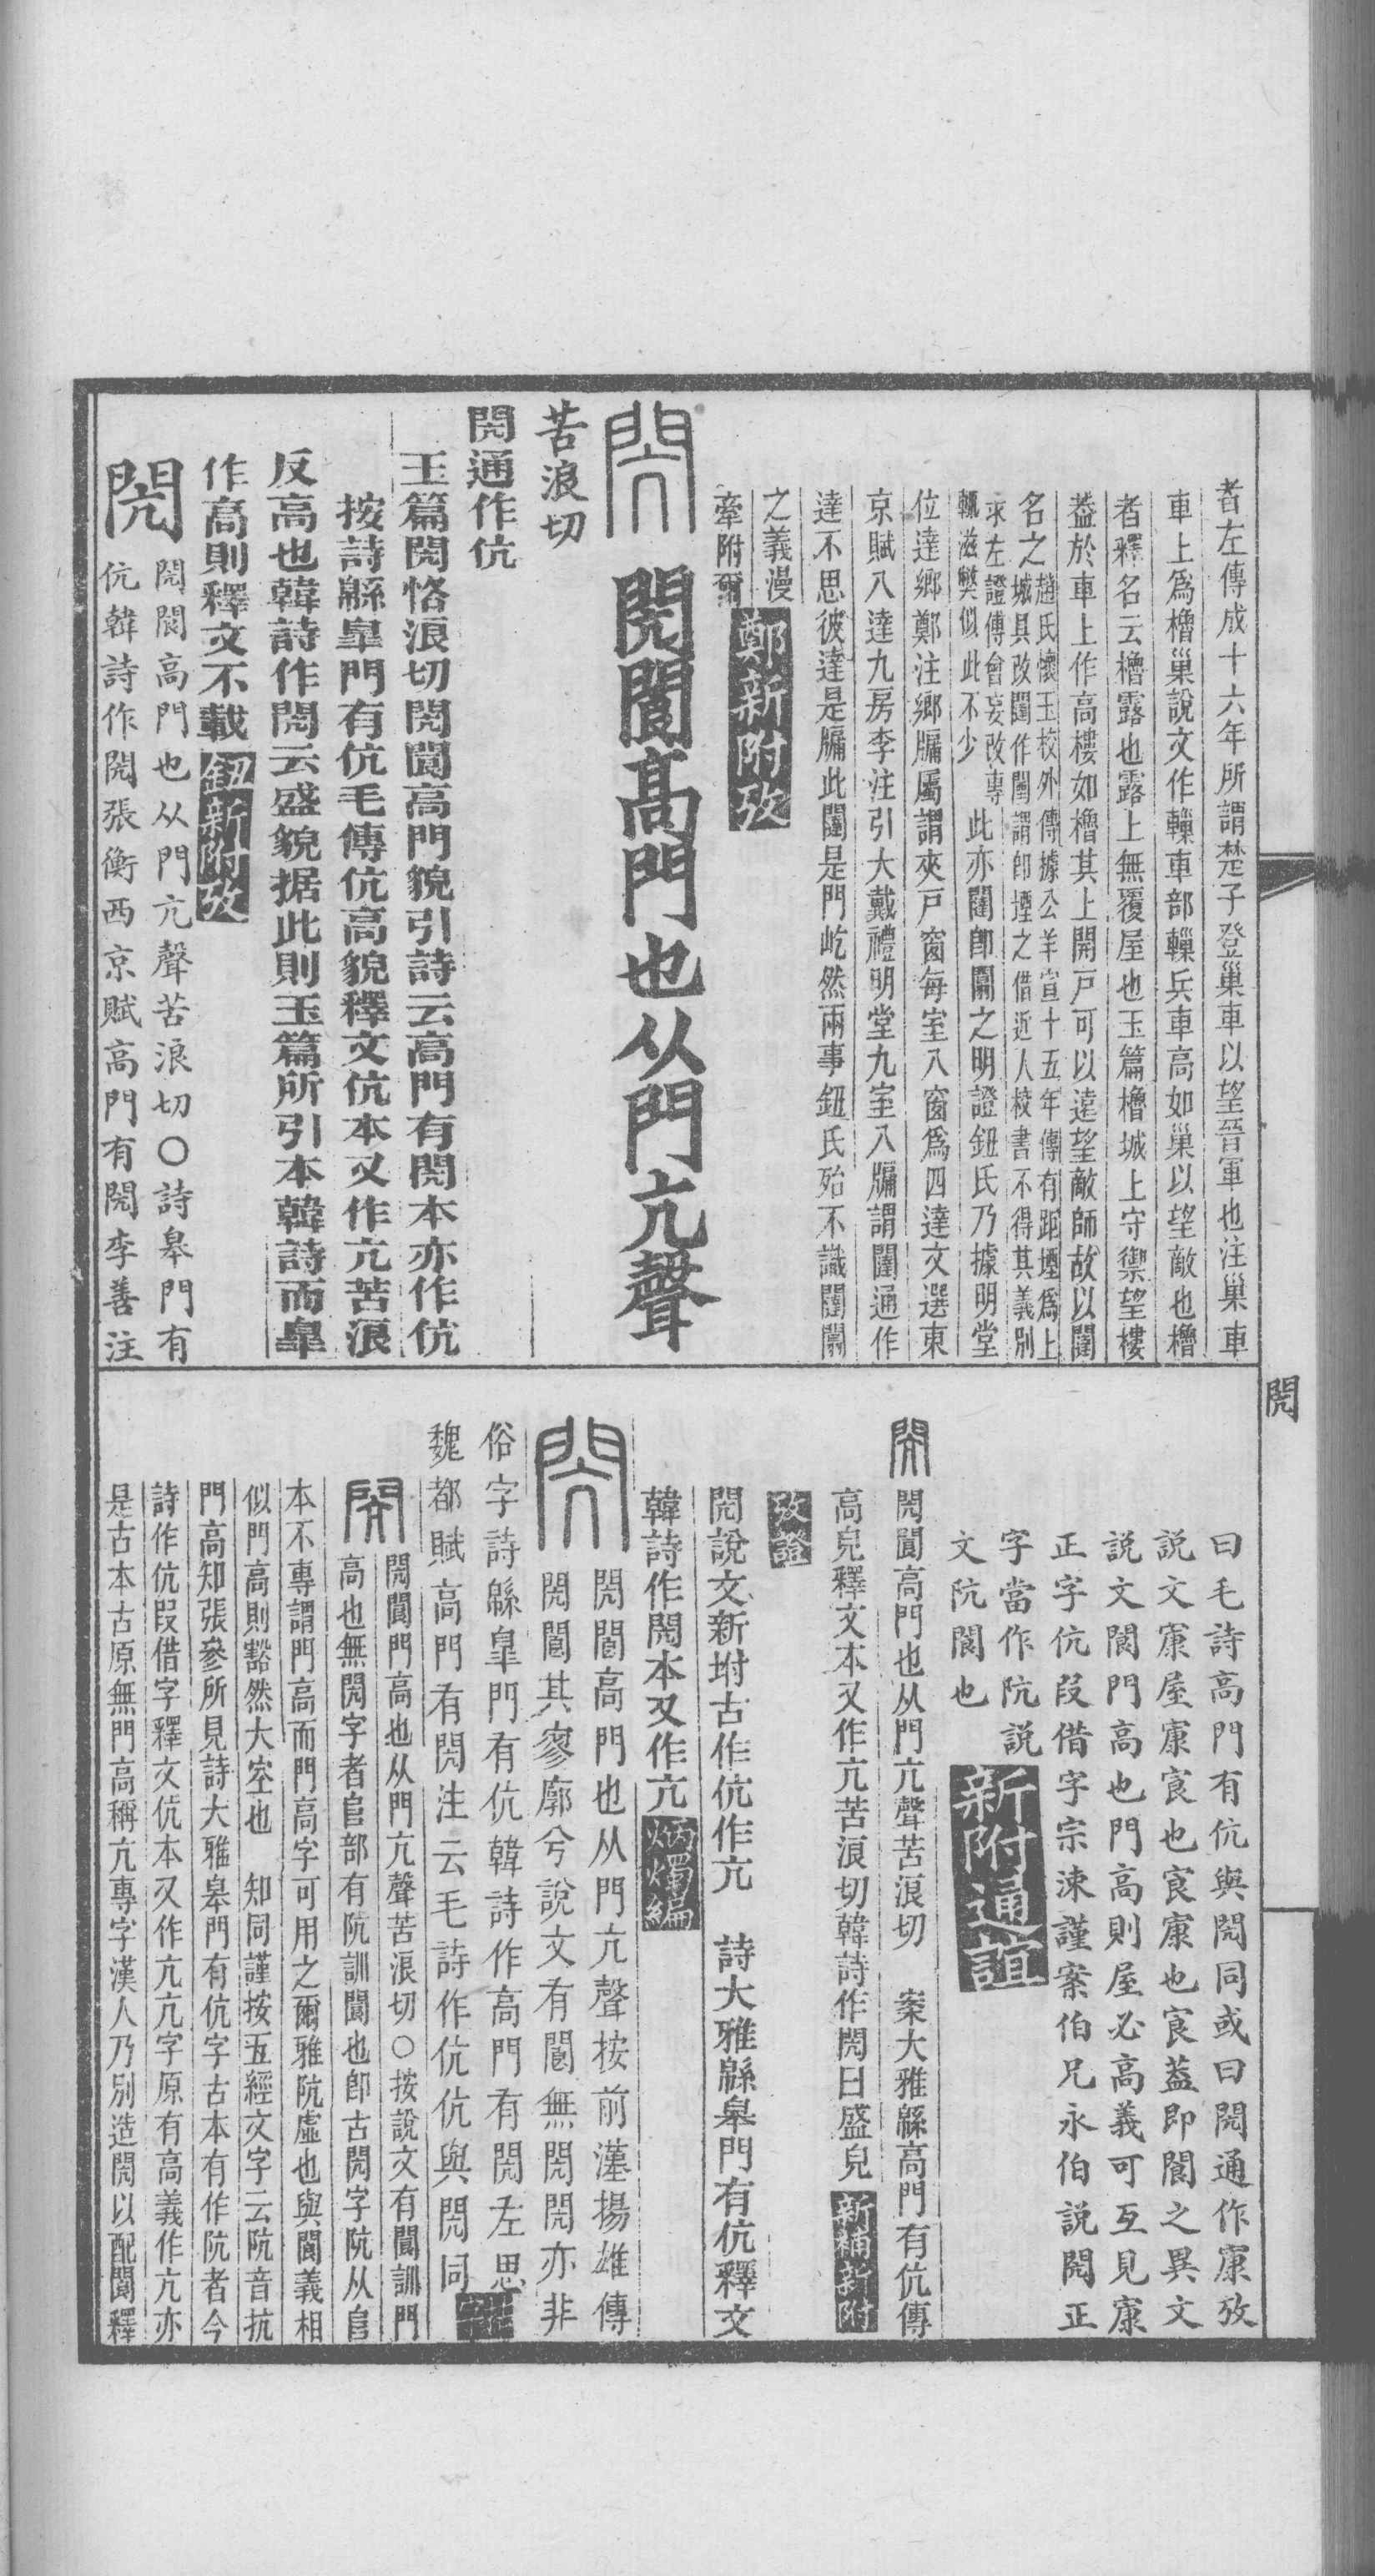 者左傳成十六年所謂楚子登巢車以望晉軍也注巢車
車上爲櫓巢說文作轈車部轈兵車高如巢以望敵也櫓
者釋名云櫓露也露上無覆屋也玉篇櫓城上守禦望樓
葢於車上作高樓如櫓其上開戸可以遠望敵師故以闉
名之趙氏懷玉校外傳據公羊宣十五年傳有距堙爲上
城具改闉作闉謂卽堙之借近人校書不得其義別
求左證傅會妄改專
輒滋弊似此不少
此亦闉卽闠之明證鈕氏乃據明堂
位達鄉鄭注鄉牖屬謂夾戸窗每室八窗爲四達文選東
京賦八達九房李注引大戴禮明堂九室八牖謂闥通作
達不思彼達是牖此闥是門屹然兩事鈕氏殆不識
之義漫
牽附爾
鄭新附攷
閌
閌閬高門也从門亢聲
苦浪切
閌通作伉
玉篇閌恪浪切閌閬高門貌引詩云高門有閌本亦作伉
按詩緜臯門有伉毛傳伉高貌釋文伉本又作亢苦浪
反高也韓詩作閌云盛貌据此則玉篇所引本韓詩而臯
作高則釋文不載
鈕新附攷
閌
閌閬高門也从門亢聲苦浪切〇詩皋門有
伉韓詩作閌張衡西京賦高門有閌李善注
閌
曰毛詩高門有伉與閌同或曰閌通作康攷
說文康屋康㝗也㝗康也㝗葢即閬之異文
說文閬門高也門高則屋必高義可互見康
正字伉叚借字宗涑謹案伯兄永伯說閌正
字當作阬說
文阬閬也
新附通誼
閌
閌閬高門也从門亢聲苦浪切 案大雅緜高門有伉傳
高皃釋文本又作亢苦浪切韓詩作閌曰盛皃
新補新附
攷證
閌說文新坿古作伉作亢 詩大雅緜皋門有伉釋文
韓詩作閌本又作亢
炳燭編
閌
閌閬高門也从門亢聲按前漢揚雄傳
閌閬其寥廓兮說文有閬無閌閌亦非
俗字詩緜臯門有伉韓詩作高門有閌左思
魏都賦高門有閌注云毛詩作伉伉與閌同
閌
閌閬門高也从門亢聲苦浪切〇按說文有閬訓門
高也無閌字者𨸏部有阬訓閬也卽古閌字阬从𨸏
本不專謂門高而門高字可用之爾雅阬虛也與閬義相
似門高則豁然大空也 知同謹按五經文字云阬音抗
門高知張參所見詩大雅皋門有伉字古本有作阬者今
詩作伉叚借字釋文伉本又作亢亢字原有高義作亢亦
是古本古原無門高稱亢專字漢人乃別造閌以配閬釋